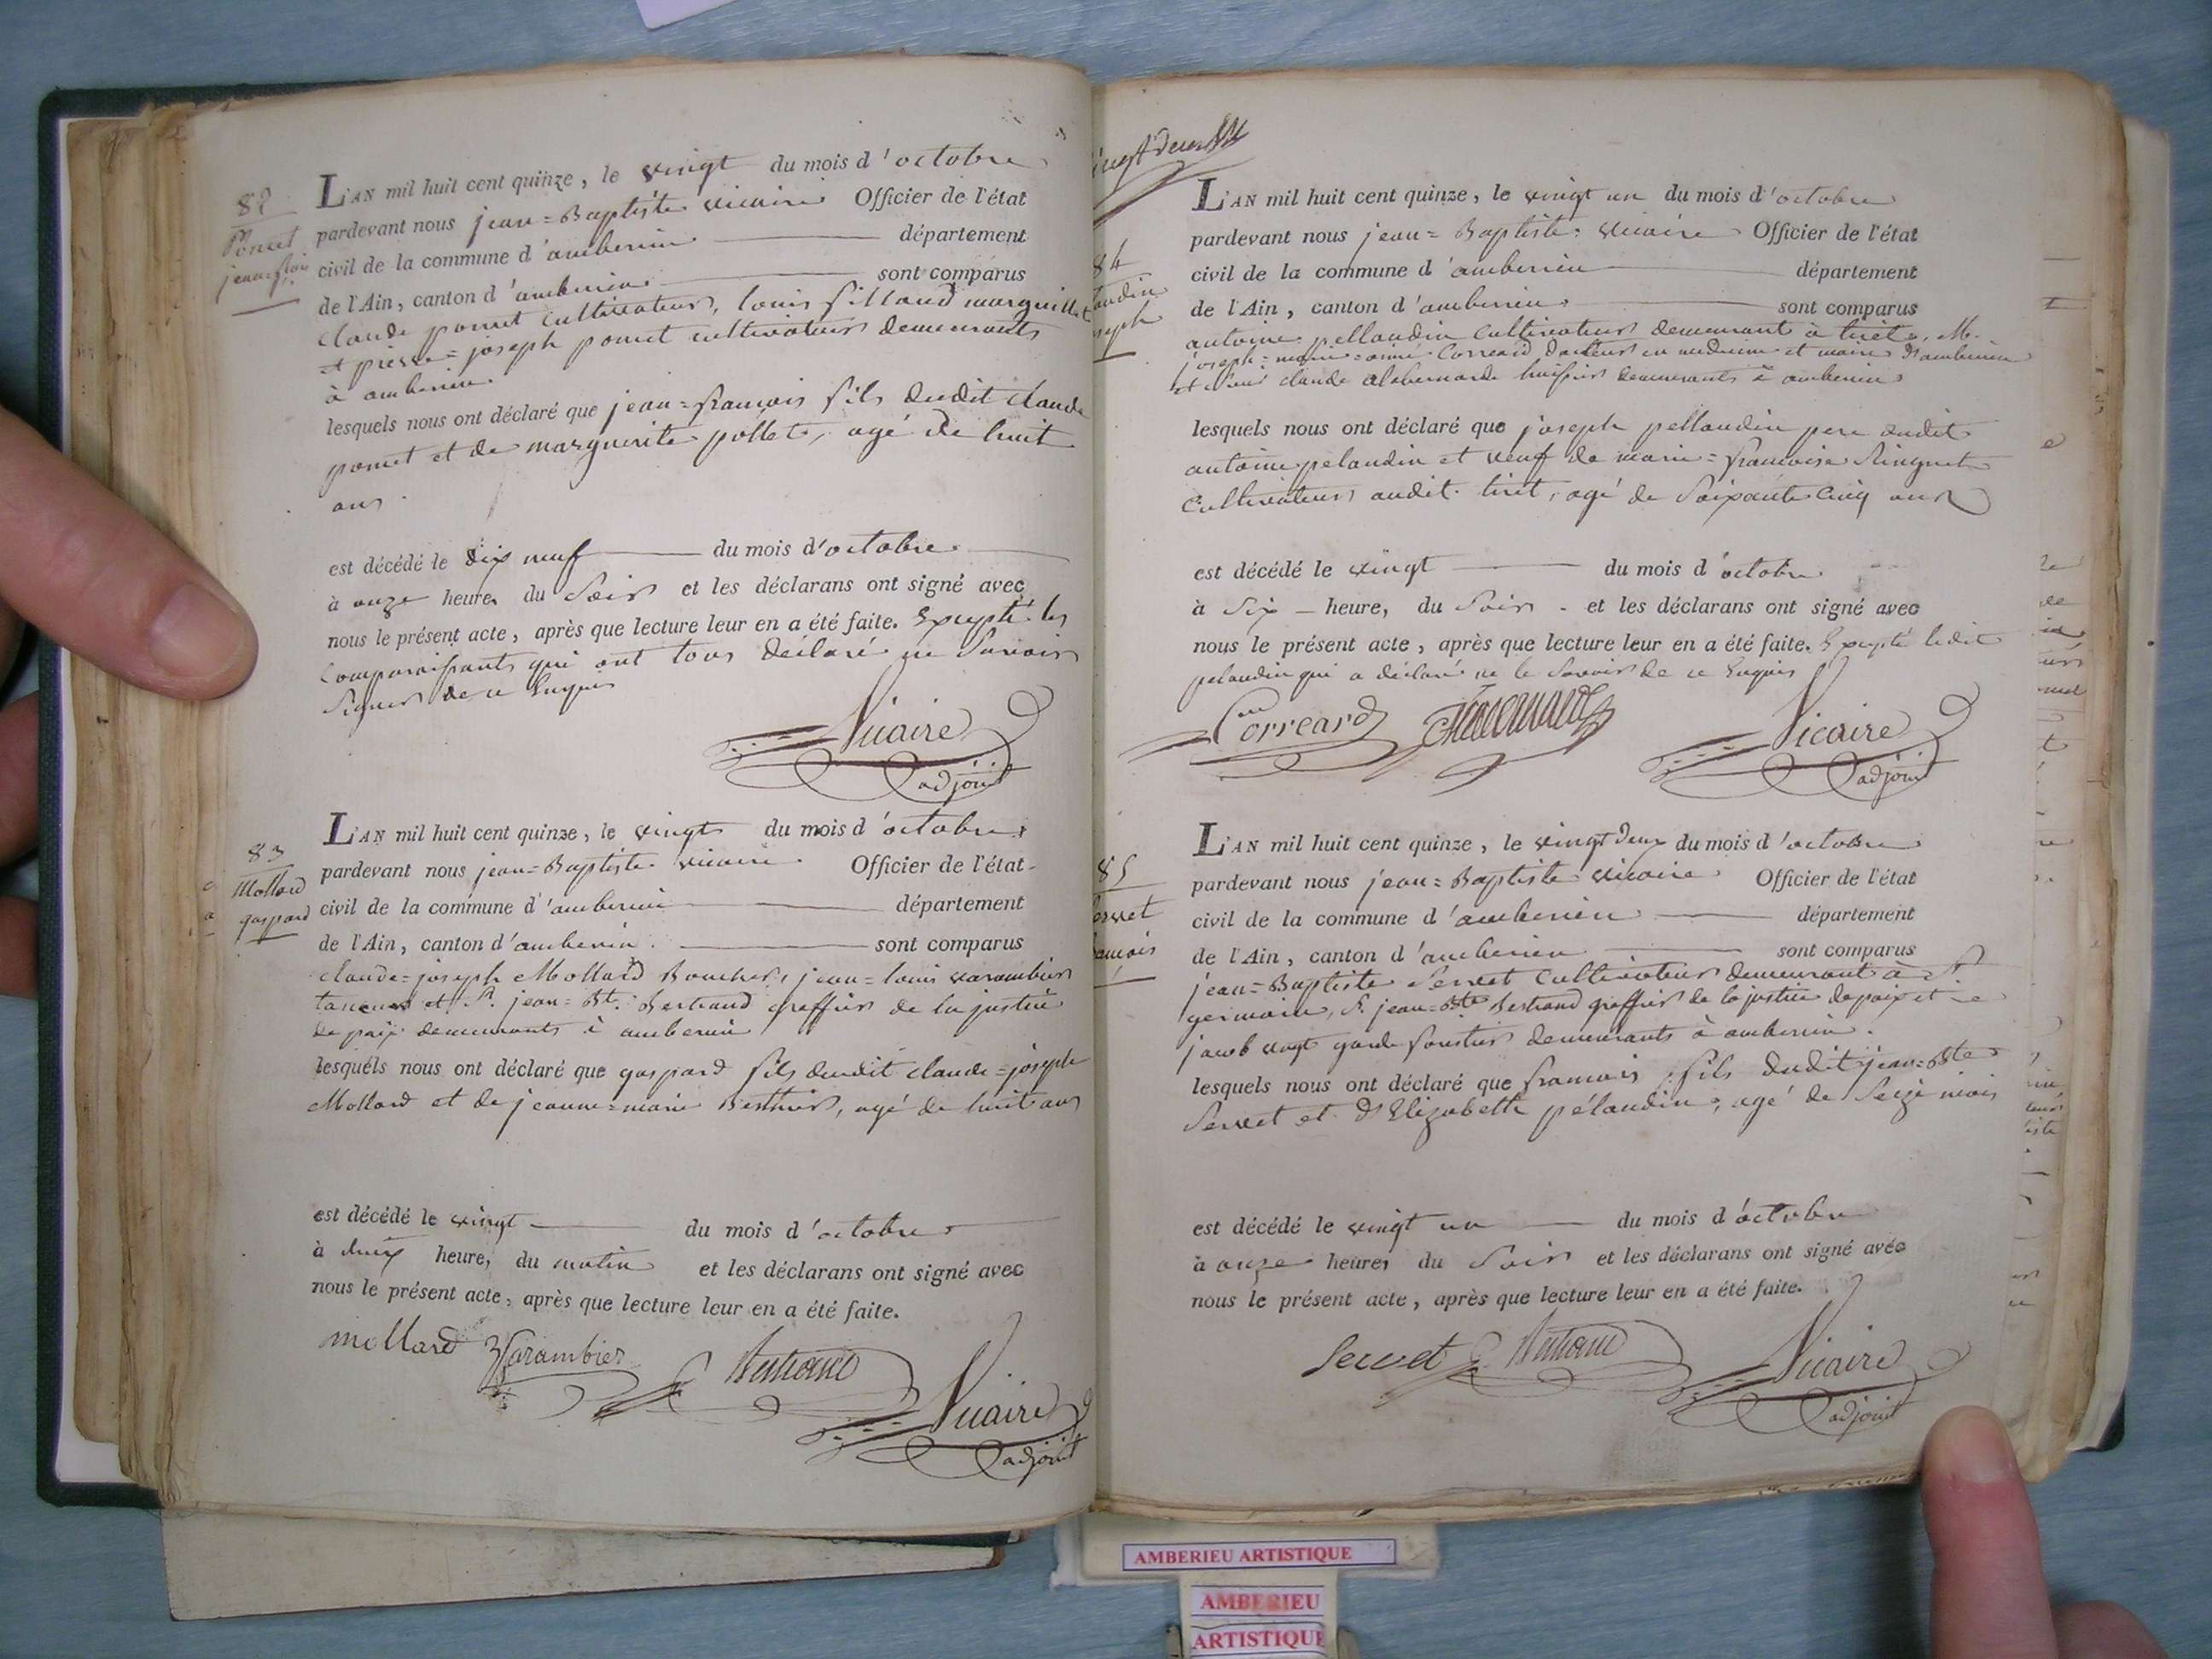 82
Ponet
jean-fois
L'AN mil huit cent quinze, le vingt du mois d'octobre
pardevant nous jean=Baptiste vicaire Officier de l'état
civil de la commune d'amberieu département
de l'Ain, canton d'amberieu sont comparus
claude ponet cultivateur, louis sillaud marguillier
et pierre=joseph ponet cultivateurs demeurants
à amberieu
lesquels nous ont déclaré que jean=francois fils dudit claude
ponet et de marguerite pollet, agé de huit
ans
est décédé le dix neuf du mois d'octobre
à onze heures du Soir et les déclarans ont signé avec
nous le présent acte, après que lecture leur en a été faite. Excepté les
comparaissants qui ont tous déclaré ne Savoir
Signer de ce Enquis
Vicaire
adjoint
83
Mollard
gaspard
L'AN mil huit cent quinze, le vingt du mois d'octobre
pardevant nous jean=Baptiste vicaire Officier de l'état-
civil de la commune d'amberieu département
de l'Ain, canton d'amberieu sont comparus
claude=joseph Mollard Boucher, jean=louis varambier
tanneur et Sr. jean=Bte. Bertrand greffier de la justice
de paix demeurants à amberieu
lesquels nous ont déclaré que gaspard fils dudit claude=joseph
Mollard et de jeanne=marie Berthier, agé de huit ans
est décédé le vingt du mois d'octobre
à deux heures du matin et les déclarans ont signé avec
nous le présent acte, après que lecture leur en a été faite.
mollard Varambier Bertrand
Vicaire
adjoint
vingt deux
84
landin
seph
L'AN mil huit cent quinze, le vingt un du mois d'octobre
pardevant nous jean=Baptiste vicaire Officier de l'état
civil de la commune d'amberieu département
de l'Ain, canton d'amberieu sont comparus
antoine pellaudin cultivateur demeurant à tiret, M.
joseph=marie=aimé Correard docteur en medecine et maire d'amberieu
et Sieur claude alabernarde huissier demeurants à amberieu
lesquels nous ont déclaré que joseph pellaudin pere dudit
antoine pelaudin et veuf de marie=francoise Ringuet
cultivateur audit tiret, agé de Soixante Cinq ans
est décédé le vingt du mois d'octobre
à Six heures du Soir et les déclarans ont signé avec
nous le présent acte, après que lecture leur en a été faite. Excepté ledit
pelaudin qui a déclaré ne le Savoir de ce Enquis
Correard
Vicaire
adjoint
85
ervet
ancois
L'AN mil huit cent quinze, le vingt deux du mois d'octobre
pardevant nous jean=Baptiste vicaire Officier de l'état
civil de la commune d'amberieu département
de l'Ain, canton d'amberieu sont comparus
jean=Baptiste Servet cultivateur demeurant à St.
germain, Sr. jean=Bte Bertrand greffier de la justice de paix et
jacob vogt garde forestier demeurants à amberieu.
lesquels nous ont déclaré que francois fils dudit jean=Bte
Servet et d'Elizabeth pélaudin, agé de Seize mois
est décédé le vingt un du mois d'octobre
à onze heures du Soir et les déclarans ont signé avec
nous le présent acte, après que lecture leur en a été faite.
Servet Bertrand
Vicaire
adjoint
AMBERIEU ARTISTIQUE
AMBERIEU
ARTISTIQUE